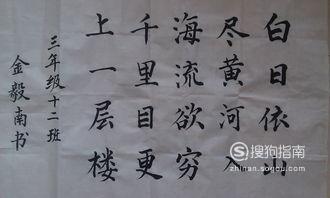 白日依山
尽黄河入
海流欲穷
千里目更
上一层楼
三年级十二班
金毅南书
搜狗指南
zhinan.sogou.com